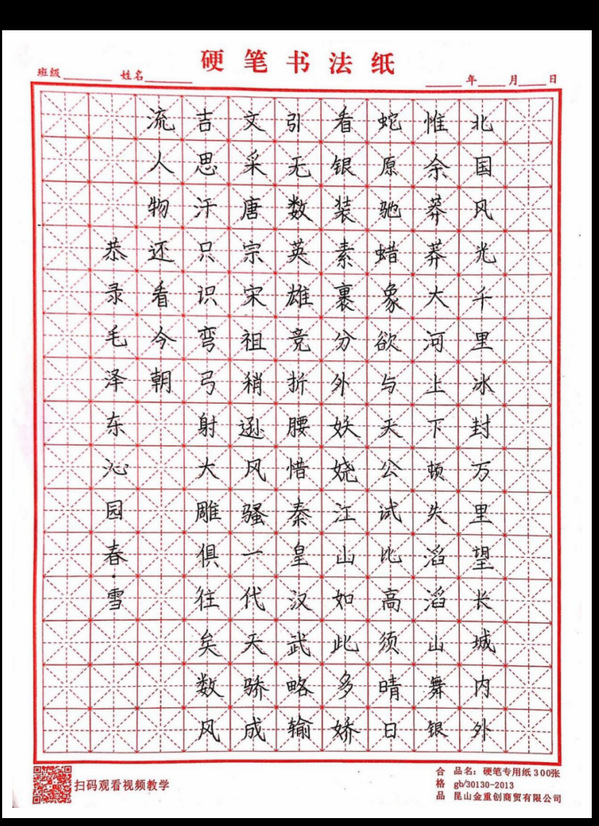 硬笔书法纸
班级 姓名 年 月 日
北国风光千里冰封万里望长城内外
惟余莽莽大河上下顿失滔滔山舞银
蛇原驰蜡象欲与天公试比高须晴日
看银装素裹分外妖娆江山如此多娇
引无数英雄竞折腰惜秦皇汉武略输
文采唐宗宋祖稍逊风骚一代天骄成
吉思汗只识弯弓射大雕俱往矣数风
流人物还看今朝
恭录毛泽东沁园春·雪
扫码观看视频教学
合格品
品名：硬笔专用纸300张
gb/30130-2013
昆山金重创商贸有限公司